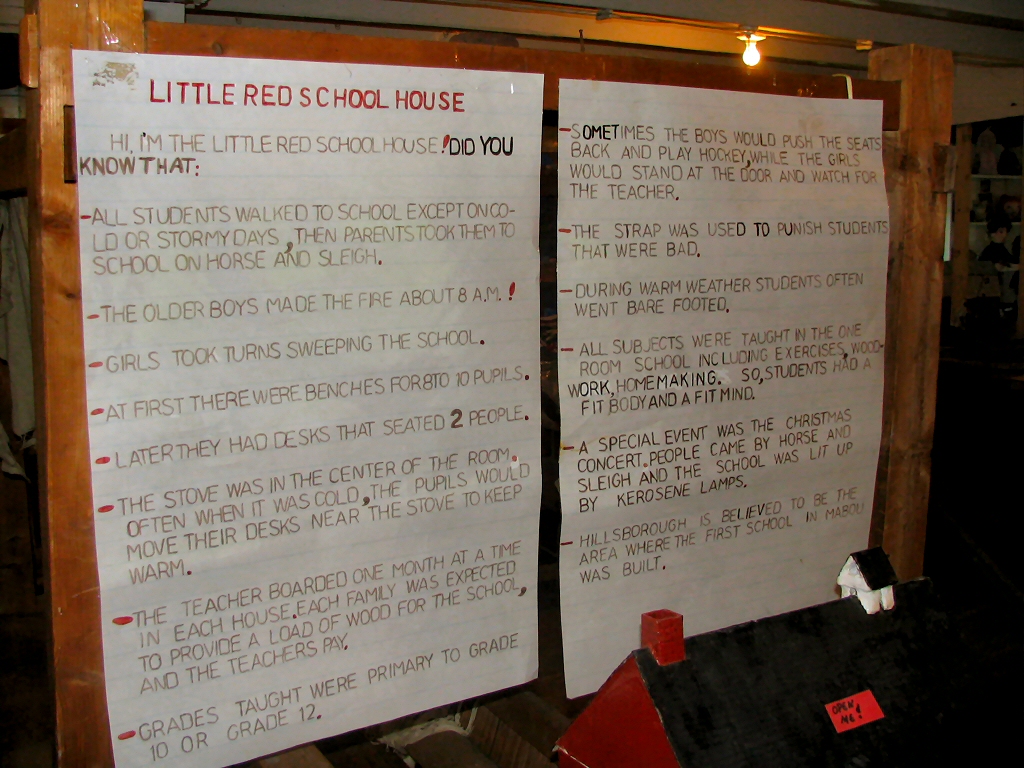 LITTLE RED SCHOOL HOUSE
HI, I'M THE LITTLE RED SCHOOLHOUSE! DID YOU
KNOW THAT:
-ALL STUDENTS WALKED TO SCHOOL EXCEPT ON CO-
LD OR STORMY DAYS, THEN PARENTS TOOK THEM TO
SCHOOL ON HORSE AND SLEIGH.
-THE OLDER BOYS MADE THE FIRE ABOUT 8 A.M.!
-GIRLS TOOK TURNS SWEEPING THE SCHOOL.
-AT FIRST THERE WERE BENCHES FOR 8 TO 10 PUPILS.
-LATER THEY HAD DESKS THAT SEATED 2 PEOPLE.
-THE STOVE WAS IN THE CENTER OF THE ROOM.
OFTEN WHEN IT WAS COLD, THE PUPILS WOULD
MOVE THEIR DESKS NEAR THE STOVE TO KEEP
WARM.
-THE TEACHER BOARDED ONE MONTH AT A TIME
IN EACH HOUSE. EACH FAMILY WAS EXPECTED
TO PROVIDE A LOAD OF WOOD FOR THE SCHOOL,
AND THE TEACHERS PAY.
-GRADES TAUGHT WERE PRIMARY TO GRADE
10 OR GRADE 12.
-SOMETIMES THE BOYS WOULD PUSH THE SEATS
BACK AND PLAY HOCKEY, WHILE THE GIRLS
WOULD STAND AT THE DOOR AND WATCH FOR
THE TEACHER.
-THE STRAP WAS USED TO PUNISH STUDENTS
THAT WERE BAD.
-DURING WARM WEATHER STUDENTS OFTEN
WENT BARE FOOTED.
-ALL SUBJECTS WERE TAUGHT IN THE ONE
ROOM SCHOOL INCLUDING EXERCISES, WOOD-
WORK, HOMEMAKING. SO, STUDENTS HAD A
FIT BODY AND A FIT MIND.
-A SPECIAL EVENT WAS THE CHRISTMAS
CONCERT. PEOPLE CAME BY HORSE AND
SLEIGH AND THE SCHOOL WAS LIT UP
BY KEROSENE LAMPS.
-HILLSBOROUGH IS BELIEVED TO BE THE
AREA WHERE THE FIRST SCHOOL IN MABOU
WAS BUILT.
OPEN
ME!